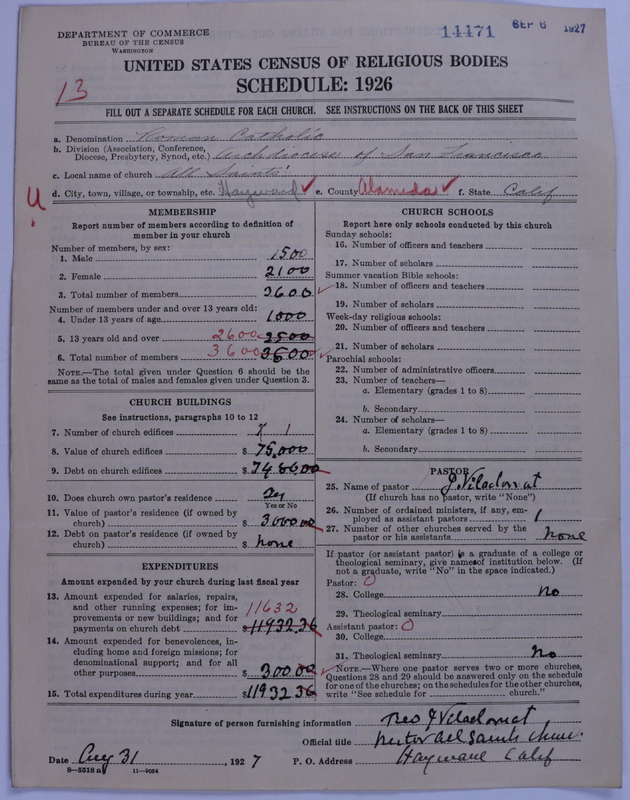 DEPARTMENT OF COMMERCE
BUREAU OF THE CENSUS
WASHINGTON
14471
SEP 6 1927
UNITED STATES CENSUS OF RELIGIOUS BODIES
SCHEDULE: 1926
13
FILL OUT A SEPARATE SCHEDULE FOR EACH CHURCH. SEE INSTRUCTIONS ON THE BACK OF THIS SHEET
a. Denomination Roman Catholic
b. Division (Association, Conference,
Diocese, Presbytery, Synod, etc.) Archdiocese of San Francisco
c. Local name of church All Saints'
d. City, town, village, or township, etc. Hayward e. County Alameda f. State Calif
U
MEMBERSHIP
Report number of members according to definition of
member in your church
Number of members, by sex:
1. Male 1500
2. Female 2100
3. Total number of members 3600
Number of members under and over 13 years old:
4. Under 13 years of age 1000
5. 13 years old and over 2600 2500
6. Total number of members 3600 3500
NOTE.—The total given under Question 6 should be the
same as the total of males and females given under Question 3.
CHURCH BUILDINGS
See instructions, paragraphs 10 to 12
7. Number of church edifices 1
8. Value of church edifices $ 75,000
9. Debt on church edifices $
10. Does church own pastor's residence
Yes or No
11. Value of pastor's residence (if owned by
church) $ 3000.00
12. Debt on pastor's residence (if owned by
church) $ none
EXPENDITURES
Amount expended by your church during last fiscal year
13. Amount expended for salaries, repairs,
and other running expenses; for im-
provements or new buildings; and for
payments on church debt 11632 $ 11932.36
14. Amount expended for benevolences, in-
cluding home and foreign missions; for
denominational support; and for all
other purposes $ 300.00
15. Total expenditures during year $ 11932 36
CHURCH SCHOOLS
Report here only schools conducted by this church
Sunday schools:
16. Number of officers and teachers
17. Number of scholars
Summer vacation Bible schools:
18. Number of officers and teachers
19. Number of scholars
Week-day religious schools:
20. Number of officers and teachers
21. Number of scholars
Parochial schools:
22. Number of administrative officers
23. Number of teachers—
a. Elementary (grades 1 to 8)
b. Secondary
24. Number of scholars—
a. Elementary (grades 1 to 8)
b. Secondary
PASTOR
25. Name of pastor J Viladomat
(If church has no pastor, write "None")
26. Number of ordained ministers, if any, em-
ployed as assistant pastors 1
27. Number of other churches served by the
pastor or his assistants none
If pastor (or assistant pastor) is a graduate of a college or
theological seminary, give names of institution below. (If
not a graduate, write "No" in the space indicated.)
Pastor: 0
28. College No
29. Theological seminary
Assistant pastor: 0
30. College
31. Theological seminary No
NOTE.—Where one pastor serves two or more churches,
Questions 28 and 29 should be answered only on the schedule
for one of the churches; on the schedules for the other churches,
write "See schedule for church."
Signature of person furnishing information J Viladomat
Official title rector All Saints
Date Aug 31, 1927 P. O. Address Hayward Calif
8—5318 a 11—9054